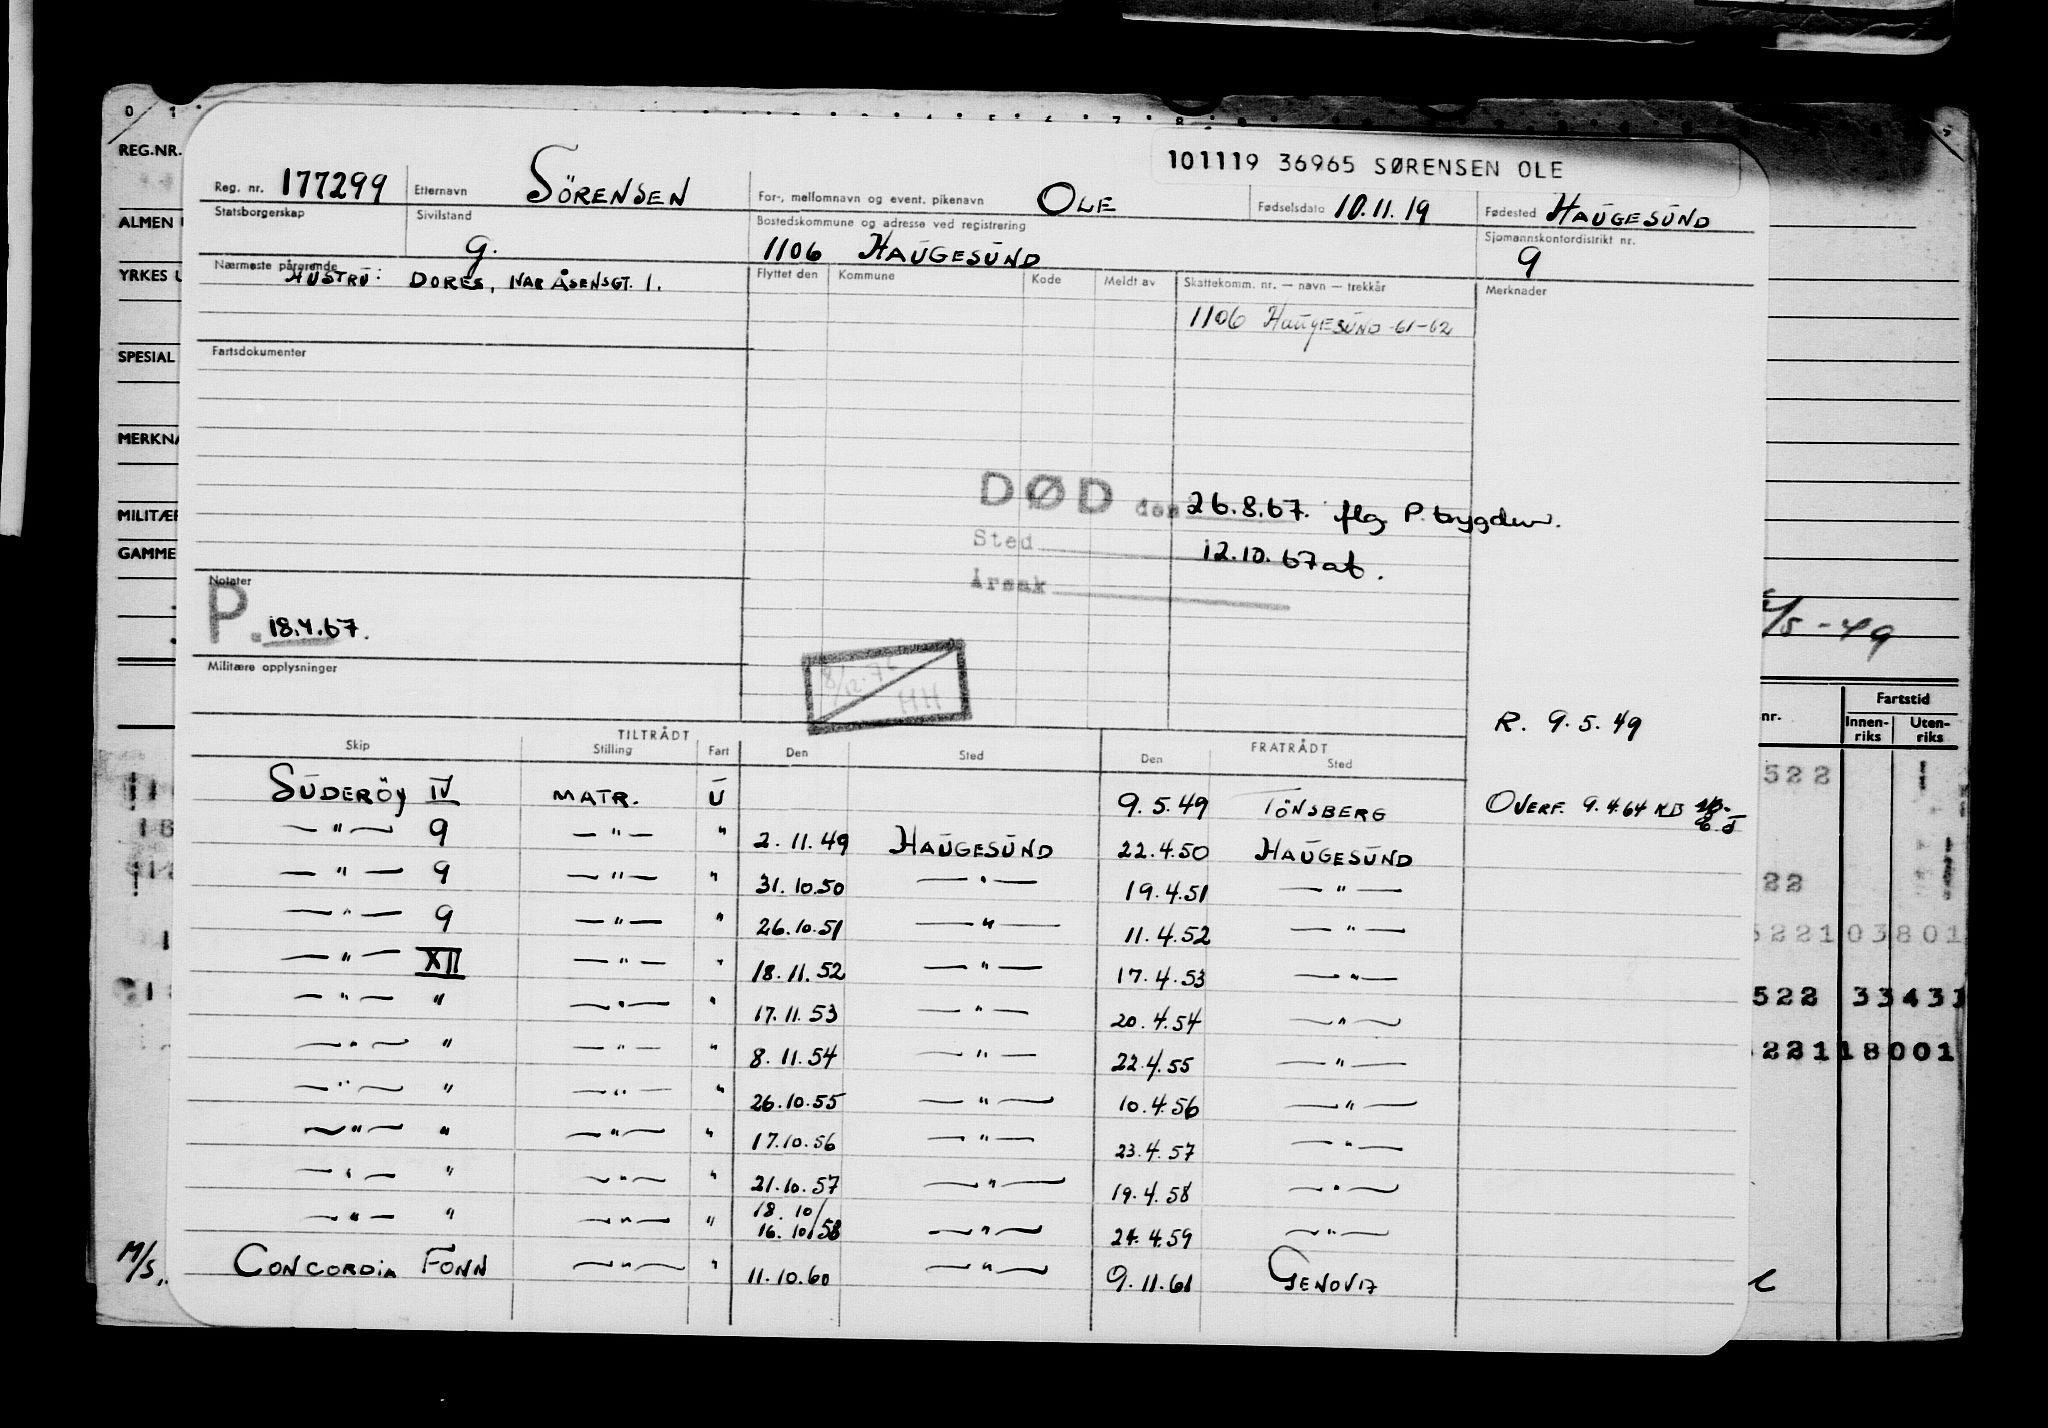 0 1
REG.NR.
ALMEN
YRKES U
SPESIAL
MERKNA
MILITÆR
GAMME
101119 36965 SØRENSEN OLE
Reg. nr. 177299 Etternavn SÖRENSEN For-, mellomnavn og event. pikenavn OLE Fødselsdato 10.11.19 Fødested HAUGESUND
Statsborgerskap Sivilstand g. Bostedskommune og adresse ved registrering 1106 HAUGESUND Sjømannskontordistrikt nr. 9
Nærmeste pårørende HUSTRU: DORES, IVAR ÅSENSGT. 1. Flyttet den Kommune Kode Meldt av Skattekomm. nr. — navn — trekkår Merknader
1106 HAUGESUND -61-62
Fartsdokumenter
DØD den 26.8.67. flg. P.trygden.
Sted 12.10.67 at.
Årsak
Notater
P. 18.4.67.
Militære opplysninger
8/12.76
HH
5/5-49
R. 9.5.49
TILTRÅDT FRATRÅDT
Skip Stilling Fart Den Sted Den Sted
nr. Fartstid
Innen-riks Uten-riks
SUDERÖY IV MATR. U 9.5.49 TÖNSBERG OVERF. 9.4.64 KB
—"— 9 —"— " 2.11.49 HAUGESUND 22.4.50 HAUGESUND
—"— 9 —"— " 31.10.50 —"— 19.4.51 —"—
—"— 9 —"— " 26.10.51 —"— 11.4.52 —"—
—"— XII —"— " 18.11.52 —"— 17.4.53 —"—
—"— " —"— " 17.11.53 —"— 20.4.54 —"—
—"— " —"— " 8.11.54 —"— 22.4.55 —"—
—"— " —"— " 26.10.55 —"— 10.4.56 —"—
—"— " —"— " 17.10.56 —"— 23.4.57 —"—
—"— " —"— " 21.10.57 —"— 19.4.58 —"—
—"— " —"— " 18.10/16.10/58 —"— 24.4.59 —"—
M/S. CONCORDIA FONN —"— " 11.10.60 —"— 9.11.61 GENOVA
522
22
5221 03801
522 33431
221 18001